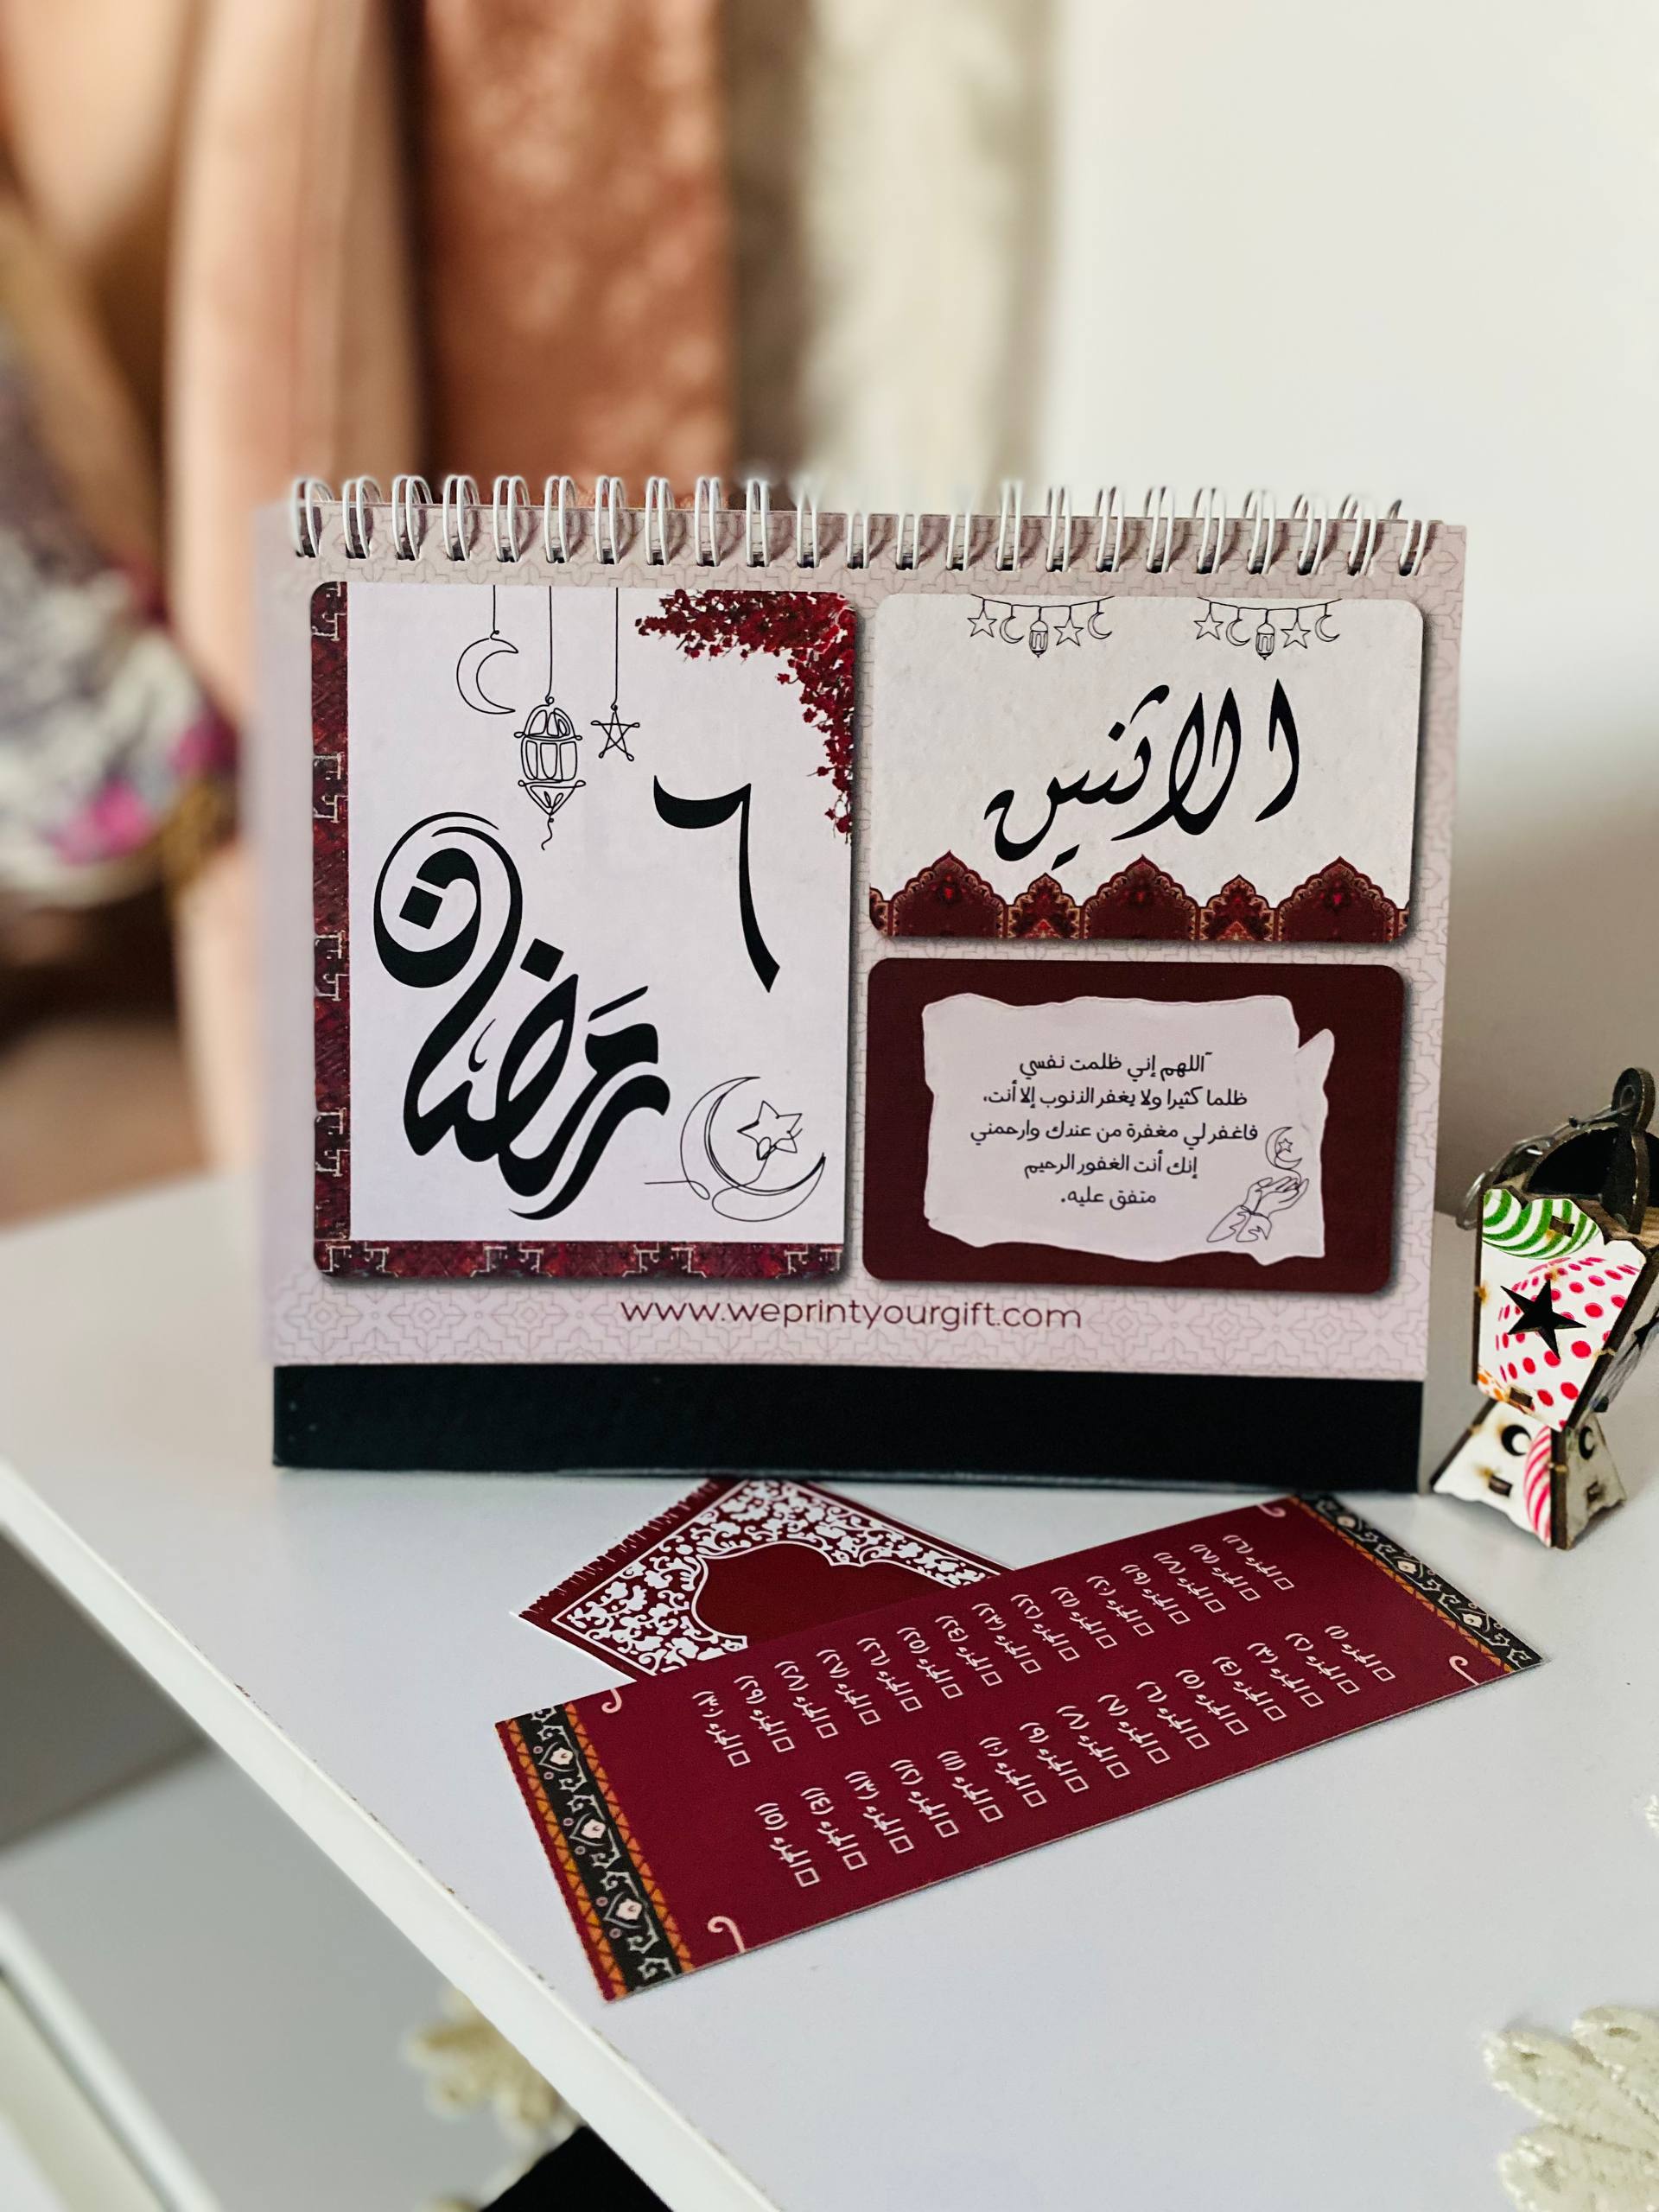 ٦
رمضان
الاثنين
اللهم إني ظلمت نفسي
ظلما كثيرا ولا يغفر الذنوب إلا أنت،
فاغفر لي مغفرة من عندك وارحمني
إنك أنت الغفور الرحيم
متفق عليه.
www.weprintyourgift.com
الجزء (١)
الجزء (٢)
الجزء (٣)
الجزء (٤)
الجزء (٥)
الجزء (٦)
الجزء (٧)
الجزء (٨)
الجزء (٩)
الجزء (١٠)
الجزء (١١)
الجزء (١٢)
الجزء (١٣)
الجزء (١٤)
الجزء (١٥)
الجزء (١٦)
الجزء (١٧)
الجزء (١٨)
الجزء (١٩)
الجزء (٢٠)
الجزء (٢١)
الجزء (٢٢)
الجزء (٢٣)
الجزء (٢٤)
الجزء (٢٥)
الجزء (٢٦)
الجزء (٢٧)
الجزء (٢٨)
الجزء (٢٩)
الجزء (٣٠)